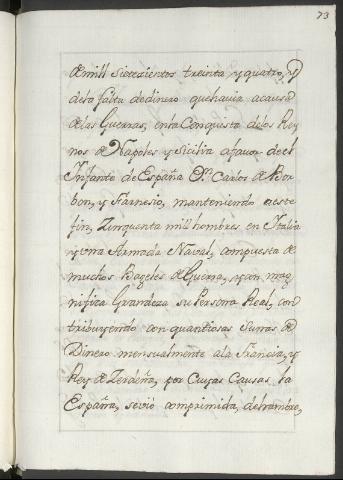 73
de mill sietezientos treinta y quatro, y
dela falta de dinero que havia a causa
de las Guerras, en la Conquista de los Rey
nos de Napoles y Sicilia a favor de el
Infante de España Dn. Carlos de Bor
bon, y Farnesio, manteniendo a este
fin, Zinquanta mill hombres en Italia
y una Armada Naval, compuesta de
muchos Bageles de Guerra, y con mag
nifiza Grandeza su Persona Real, con
tribuyendo con quantiosas Sumas de
Dinero mensualmente a la Francia, y
Rey de Zerdeña, por Cuyas Causas la
España, sevió comprimida, del hambre,